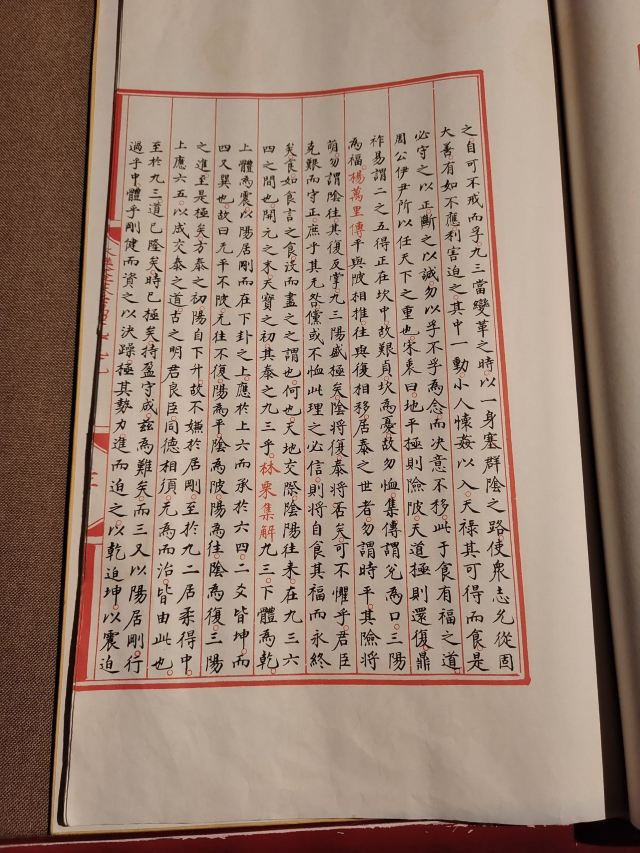 之自可不戒而孚九三當變革之時以一身塞群陰之路使衆志允從固
大善有如不應利害迫之其中一動小人懷姦以入天祿其可得而食是
必守之以正斷之以誠勿以孚不孚為念而决意不移此于食有福之道
周公伊尹所以任天下之重也宋衷曰地平極則險陂天道極則還復鼎
祚易謂二之五得正在坎中故艱貞坎為憂故勿恤集傳謂兌為口三陽
為福楊萬里傳平與陂相推往與復相移居泰之世者勿謂時平其險將
萌勿謂陰往其復反掌九三陽盛極矣陰將復泰將否矣可不懼乎君臣
克艱而守正庶乎其无咎儻或不恤此理之必信則將自食其福而永終
矣食如食言之食沒而盡之之謂也何也天地交際陰陽往來在九三六
四之間也開元之末天寶之初其泰之九三乎林栗集解九三下體為乾
上體為震以陽居剛而在下卦之上應於上六而承於六四二爻皆坤而
四又巽也故曰无平不陂无往不復陽為平陰為陂陽為往陰為復三陽
之進至是極矣方泰之初陽自下升故不嫌於居剛至於九二居柔得中
上應六五以成交泰之道古之明君良臣同德相須无為而治皆由此也
至於九三道已隆矣時已極矣持盈守成茲為難矣而三又以陽居剛行
過乎中體乎剛健而資之以決躁極其勢力進而迫之以乾迫坤以震迫